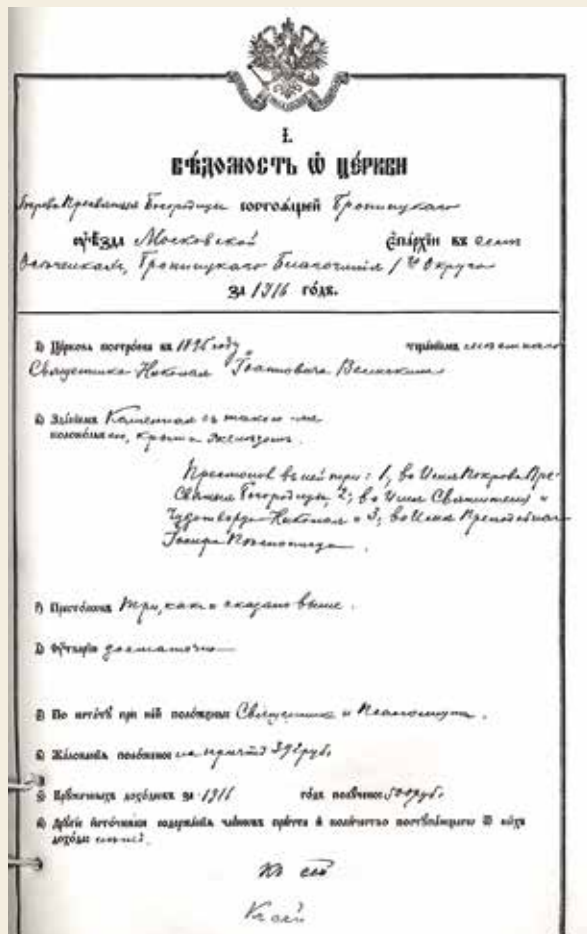 І.
ВѢДОМОСТЬ Ѡ ЦЕРКВИ
Покрова Пресвятыя Богородицы состоящей Бронницкаго
уѣзда Московской епархіи въ селѣ
Бронницкаго Благочинія 1го Округа
за 1916 годъ.
Церковь построена въ 1895 году тщаніемъ мѣстнаго
Священника Николая Іоанновича
Зданіемъ Каменная съ таковою-же
колокольнею, крыта желѣзомъ.
Престоловъ въ ней три: 1, во Имя Покрова Пре-
святыя Богородицы, 2, во Имя Святителя и
Чудотворца Николая и 3, во Имя Преподобнаго
Іосифа
Престоловъ три, какъ и сказано выше.
Утварію достаточно
По штату при ней положены Священникъ и Псаломщикъ.
Жалованья положено на причтъ 392 руб.
Кружечныхъ доходовъ за 1916 годъ получено 500 руб.
Другіе источники содержанія членовъ причта и количество поступающаго ѿ нихъ
дохода:
Къ сей
Къ сей